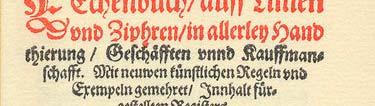 Rechenbuch/ auff Linien
vnd Ziphren/ in allerley Hand
thierung/ Geschäfften vnnd Kauffman-
schafft. Mit neuwen künstlichen Regeln vnd
Exempeln gemehret/ Innhalt für-
gestelltem Registers